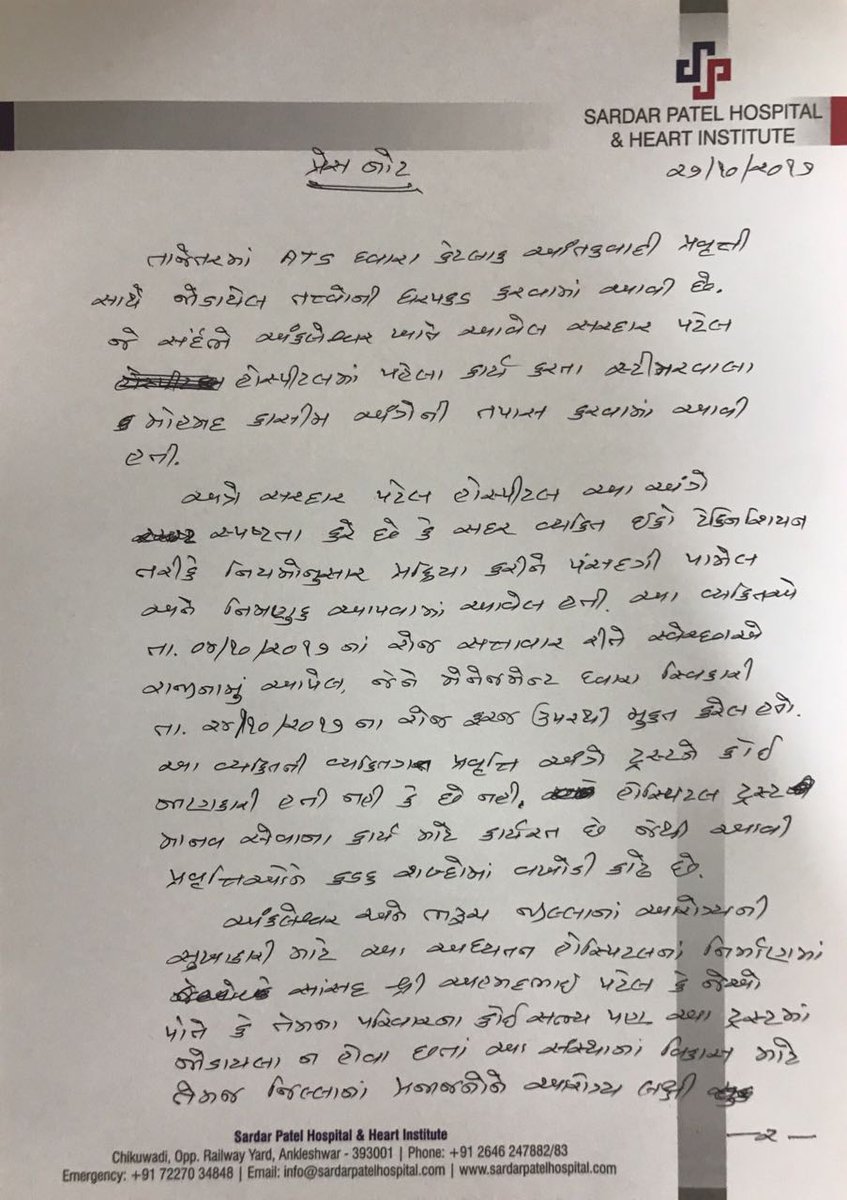 SARDAR PATEL HOSPITAL
& HEART INSTITUTE
પ્રેસ નોટ
૨૭/૧૦/૨૦૧૭
તાજેતરમાં ATS દ્વારા કેટલાક આતંકવાદી પ્રવૃત્તી
સાથે જોડાયેલ તત્વોની ધરપકડ કરવામાં આવી છે.
જે સંદર્ભે અંકલેશ્વર ખાતે આવેલ સરદાર પટેલ
હોસ્પીટલમાં પહેલા કાર્ય કરતા સ્ટીમરવાલા
મોહમદ કાસીમ અંગેની તપાસ કરવામાં આવી
હતી.
અત્રે સરદાર પટેલ હોસ્પીટલ આ અંગે
સ્પષ્ટતા કરે છે કે સદર વ્યકિત ઈકો ટેકનિશિયન
તરીકે નિયમોનુસાર પ્રક્રિયા કરીને પંસદગી પામેલ
અને નિમણુક આપવામાં આવેલ હતી. આ વ્યકિતએ
તા. ૦૪/૧૦/૨૦૧૭ નાં રોજ સત્તાવાર રીતે સ્વેચ્છાએ
રાજીનામું આપેલ, જેને મેનેજમેન્ટ દ્વારા સ્વિકારી
તા. ૨૪/૧૦/૨૦૧૭ ના રોજ ફરજ ઉપરથી મુકત કરેલ હતો.
આ વ્યકિતની વ્યકિતગત પ્રવૃત્તિ અંગે ટ્રસ્ટને કોઈ
જાણકારી હતી નહી કે છે નહી. હોસ્પિટલ ટ્રસ્ટ
માનવ સેવાના કાર્ય માટે કાર્યરત છે જેથી આવી
પ્રવૃત્તિઓને કડક શબ્દોમાં વખોડી કાઢે છે.
અંકલેશ્વર અને ભરૂચ જીલ્લાનાં આરોગ્યની
સુખાકારી માટે આ અદ્યતન હોસ્પિટલનાં નિર્માણમાં
સાંસદ શ્રી અહમદભાઈ પટેલ કે જેઓ
પોતે કે તેમના પરિવારના કોઈ સભ્ય પણ આ ટ્રસ્ટમાં
જોડાયલા ન હોવા છતાં આ સંસ્થાનાં વિકાસ માટે
તેમજ જિલ્લાનાં પ્રજાજનોને આરોગ્ય લક્ષી
—૨—
Sardar Patel Hospital & Heart Institute
Chikuwadi, Opp. Railway Yard, Ankleshwar - 393001 | Phone: +91 2646 247882/83
Emergency: +91 72270 34848 | Email: info@sardarpatelhospital.com | www.sardarpatelhospital.com